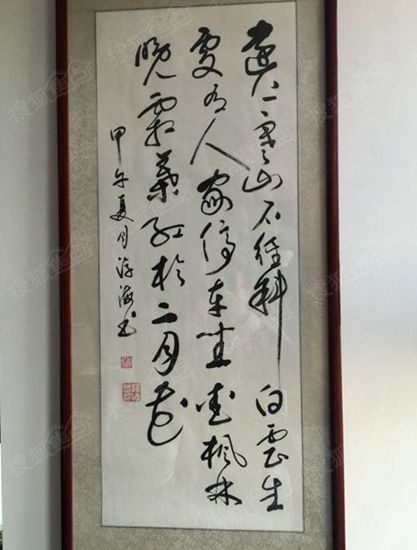 远上寒山石径斜白云生
处有人家停车坐爱枫林
晚霜叶红于二月花
甲午夏月游海书